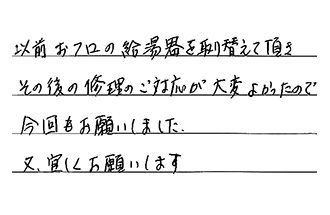 以前おフロの給湯器を取り替えて頂き
その後の修理のご対応が大変よかったので
今回もお願いしました.
又、宜しくお願いします